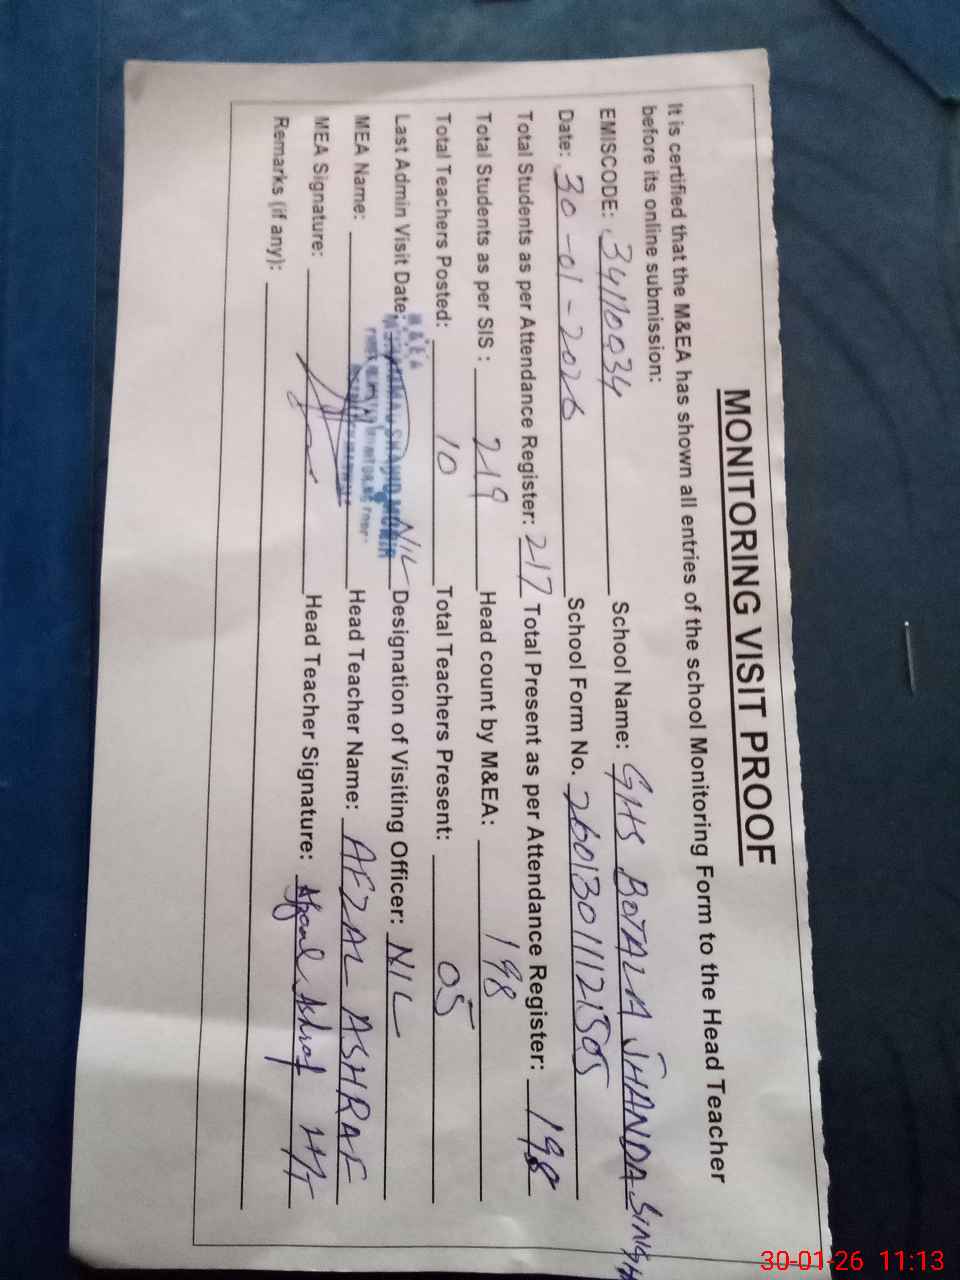 MONITORING VISIT PROOF
It is certified that the M&EA has shown all entries of the school Monitoring Form to the Head Teacher
before its online submission:
EMISCODE: 34110034 School Name: GHS BOTALA JHANDA SINGH
Date: 30-01-2026 School Form No. 26013011121505
Total Students as per Attendance Register: 217 Total Present as per Attendance Register: 198
Total Students as per SIS : 219 Head count by M&EA: 198
Total Teachers Posted: 10 Total Teachers Present: 05
Last Admin Visit Date: NIL Designation of Visiting Officer: NIL
M&EA
MEA Name: Head Teacher Name: AFZAL ASHRAF
MEA Signature: Head Teacher Signature: Afzal Ashraf HT
Remarks (if any):
30-01-26 11:13